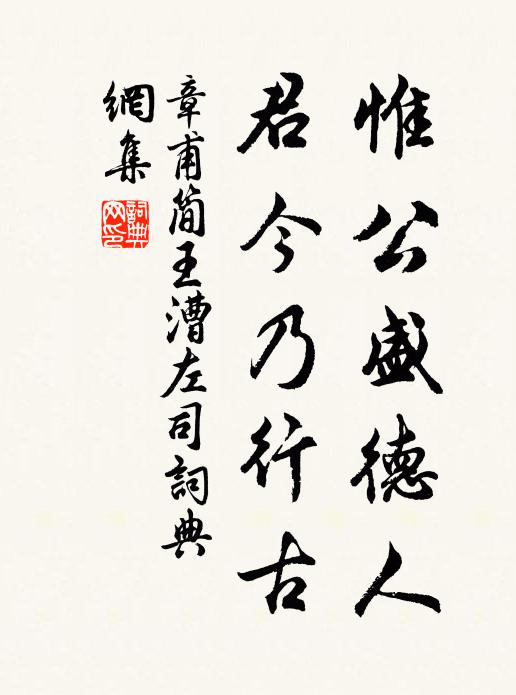 惟公盛德人
君今乃行古
章甫简王漕左司詞典
網集
詞典網印